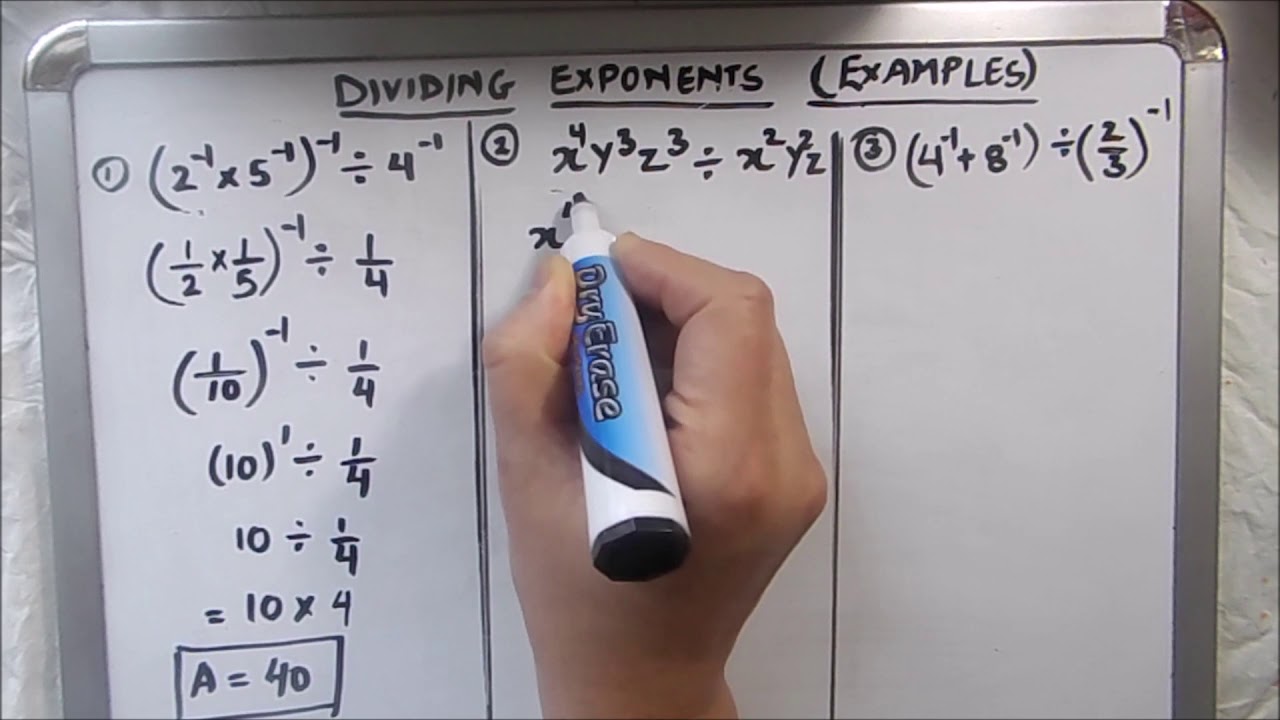 DIVIDING EXPONENTS (EXAMPLES)
① (2⁻¹ × 5⁻¹)⁻¹ ÷ 4⁻¹
(1/2 × 1/5)⁻¹ ÷ 1/4
(1/10)⁻¹ ÷ 1/4
(10)¹ ÷ 1/4
10 ÷ 1/4
= 10 × 4
A = 40
② x⁴y³z³ ÷ x²y²z
x⁴
Dry Erase
③ (4⁻¹ + 8⁻¹) ÷ (2/3)⁻¹